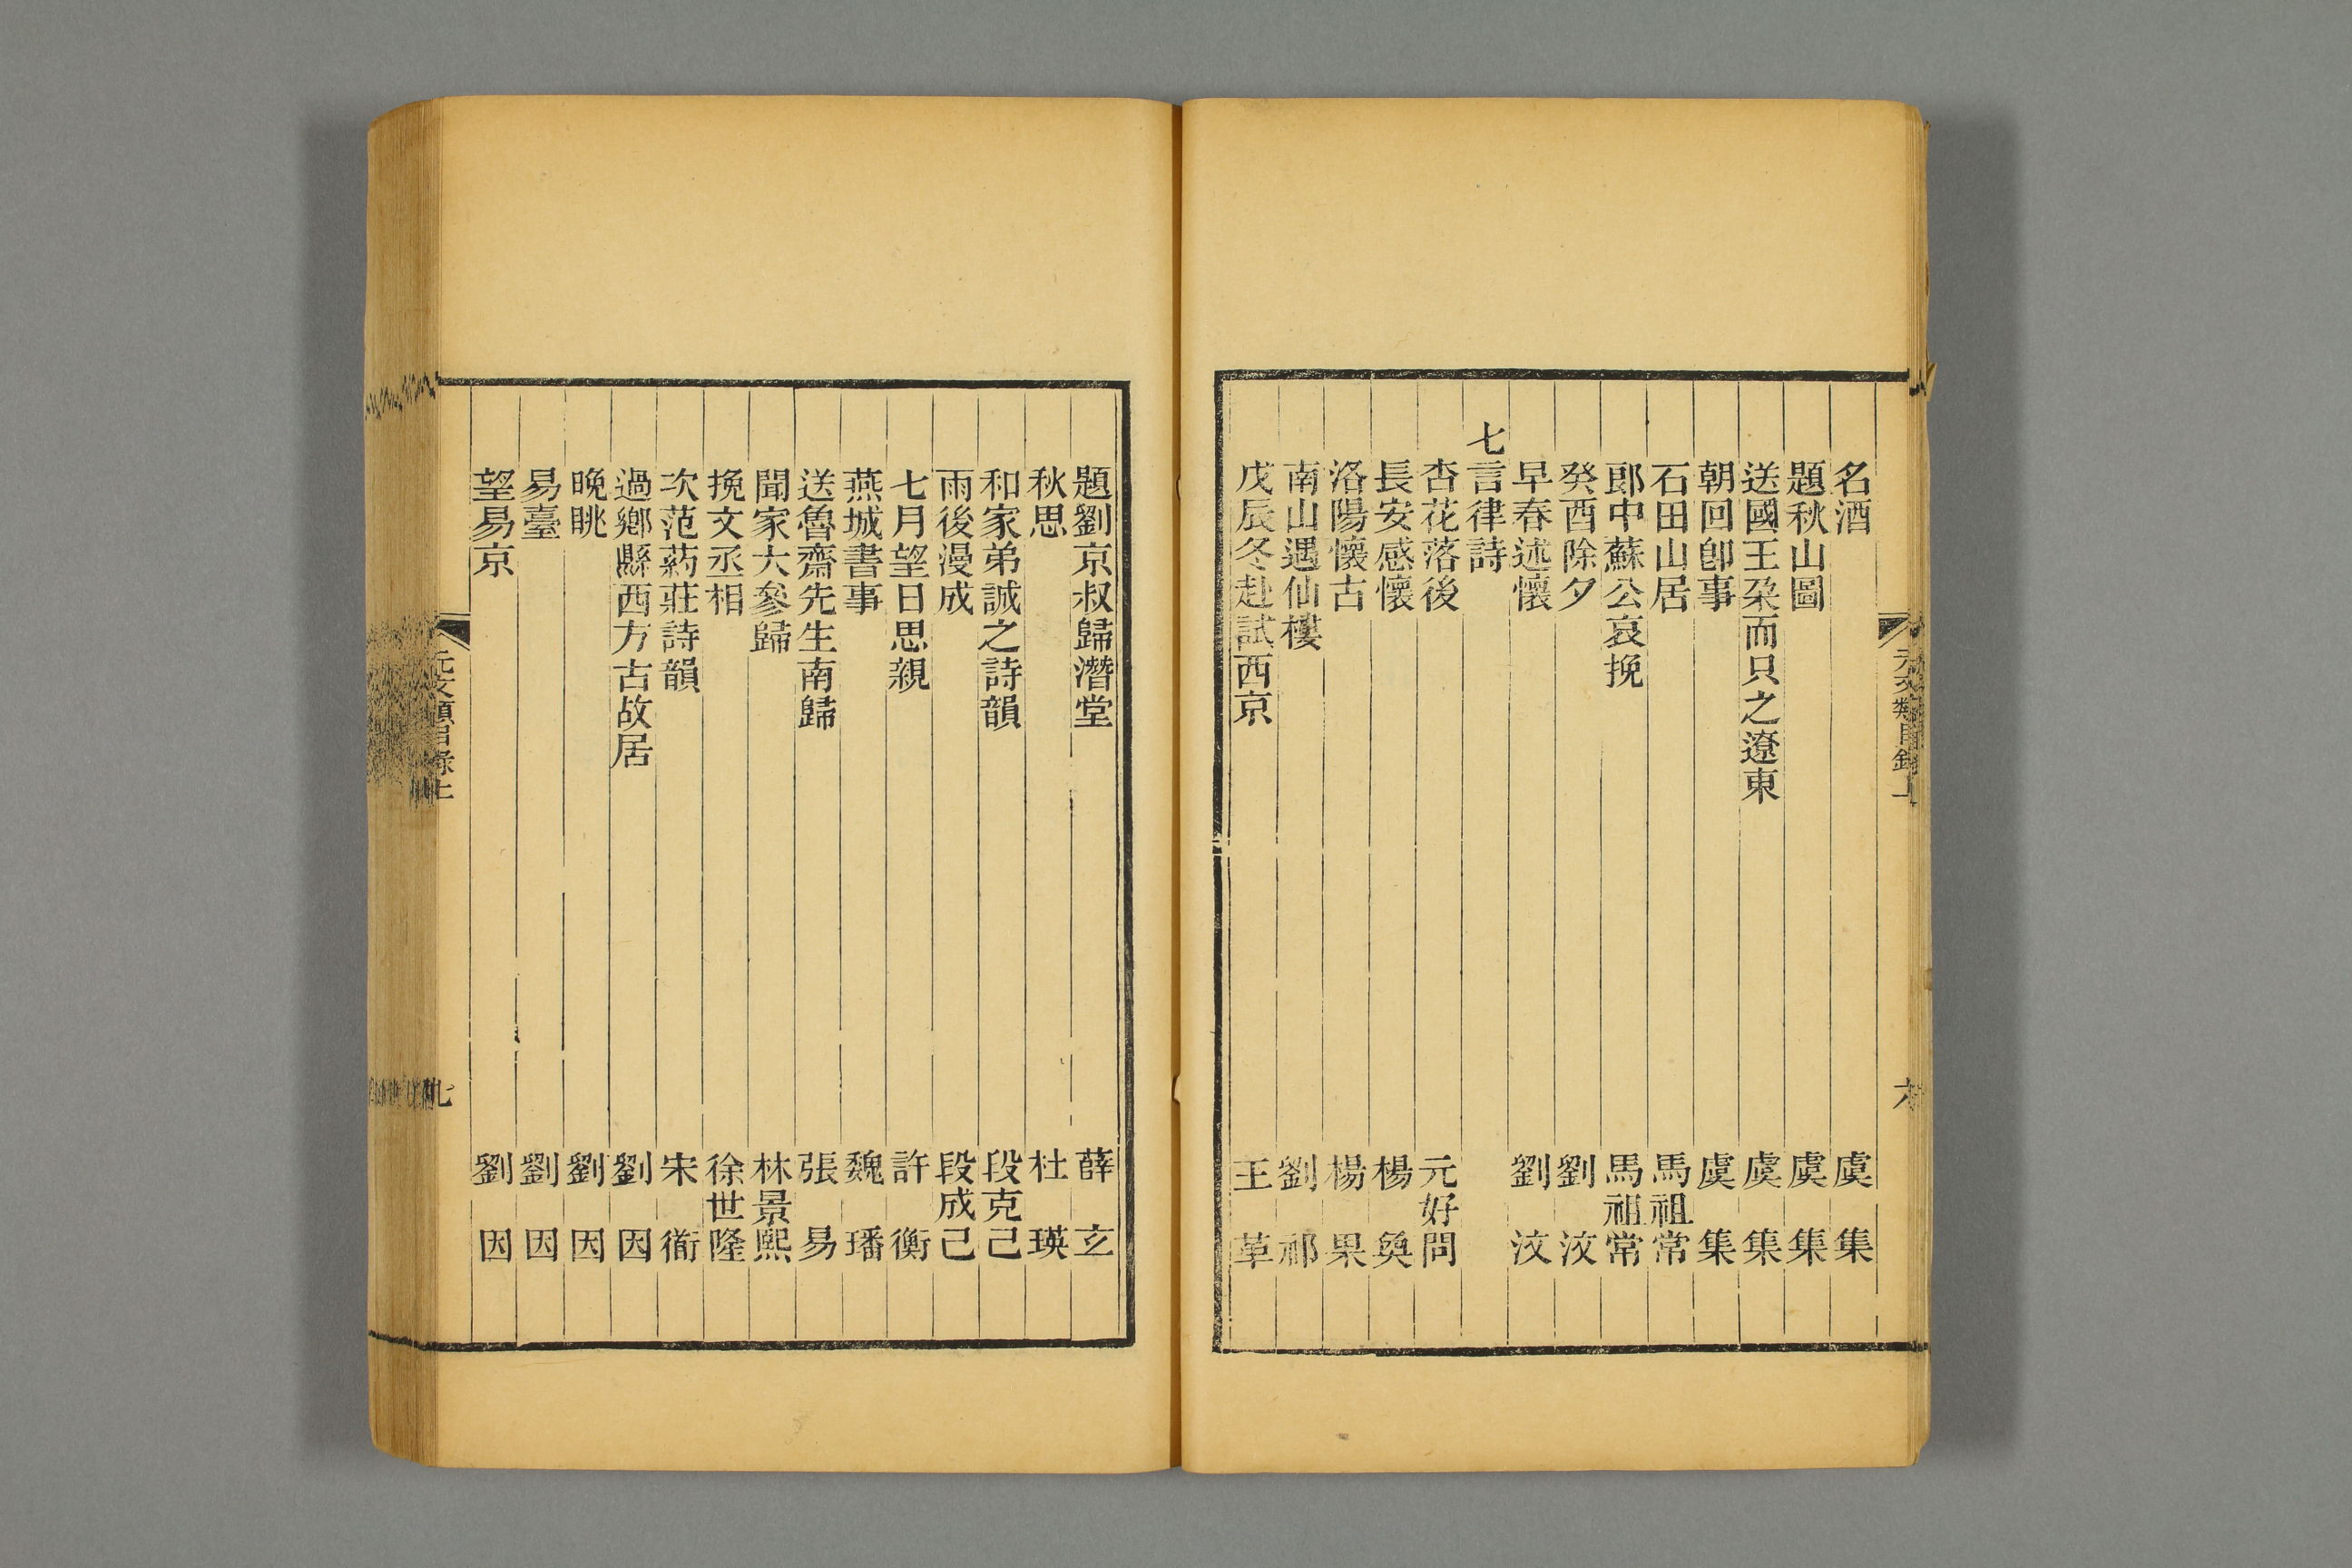 元文類目錄上
六
名酒 虞集
題秋山圖 虞集
送國王朶而只之遼東 虞集
朝回卽事 虞集
石田山居 馬祖常
郎中蘇公哀挽 馬祖常
癸酉除夕 劉汶
早春述懷 劉汶
七言律詩
杏花落後 元好問
長安感懷 楊奐
洛陽懷古 楊果
南山遇仙樓 劉祁
戊辰冬赴試西京 王革
題劉京叔歸潛堂 薛玄
秋思 杜瑛
和家弟誠之詩韻 段克己
雨後漫成 段成己
七月望日思親 許衡
燕城書事 魏璠
送魯齋先生南歸 張易
聞家大參歸 林景熙
挽文丞相 徐世隆
次范葯莊詩韻 宋衜
過鄉縣西方古故居 劉因
晚眺 劉因
易臺 劉因
望易京 劉因
元文類目錄上
七